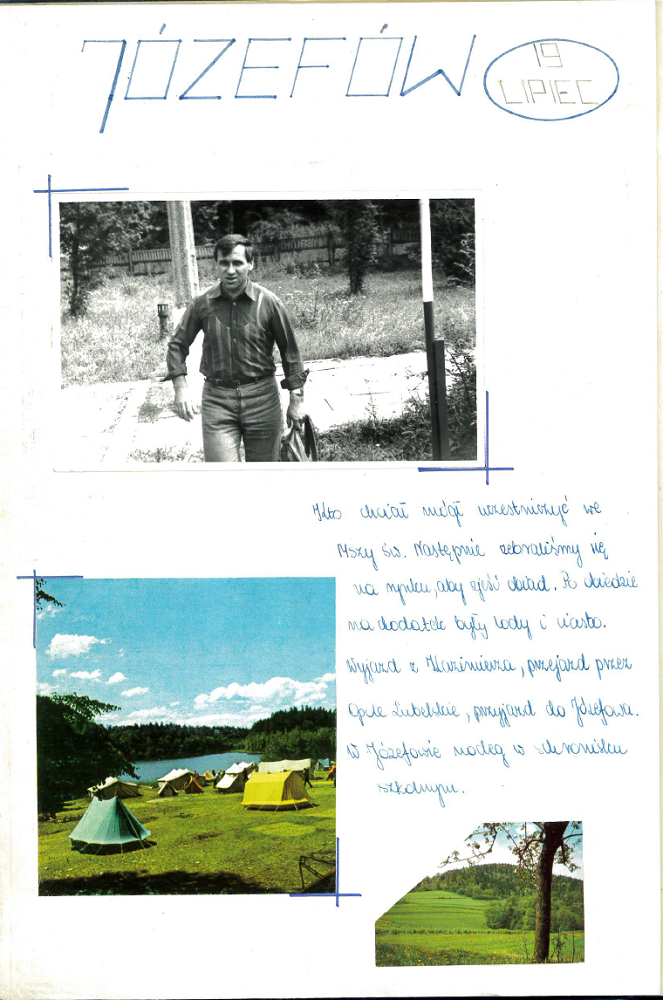 JÓZEFÓW
19
LIPIEC
Kto chciał mógł uczestniczyć we
Mszy św. Następnie zebraliśmy się
na rynku, aby zjeść obiad. Po obiedzie
na dodatek były lody i ciasto.
Wyjazd z Kazimierza, przejazd przez
Opole Lubelskie, przyjazd do Józefowa.
W Józefowie nocleg w schronisku
szkolnym.